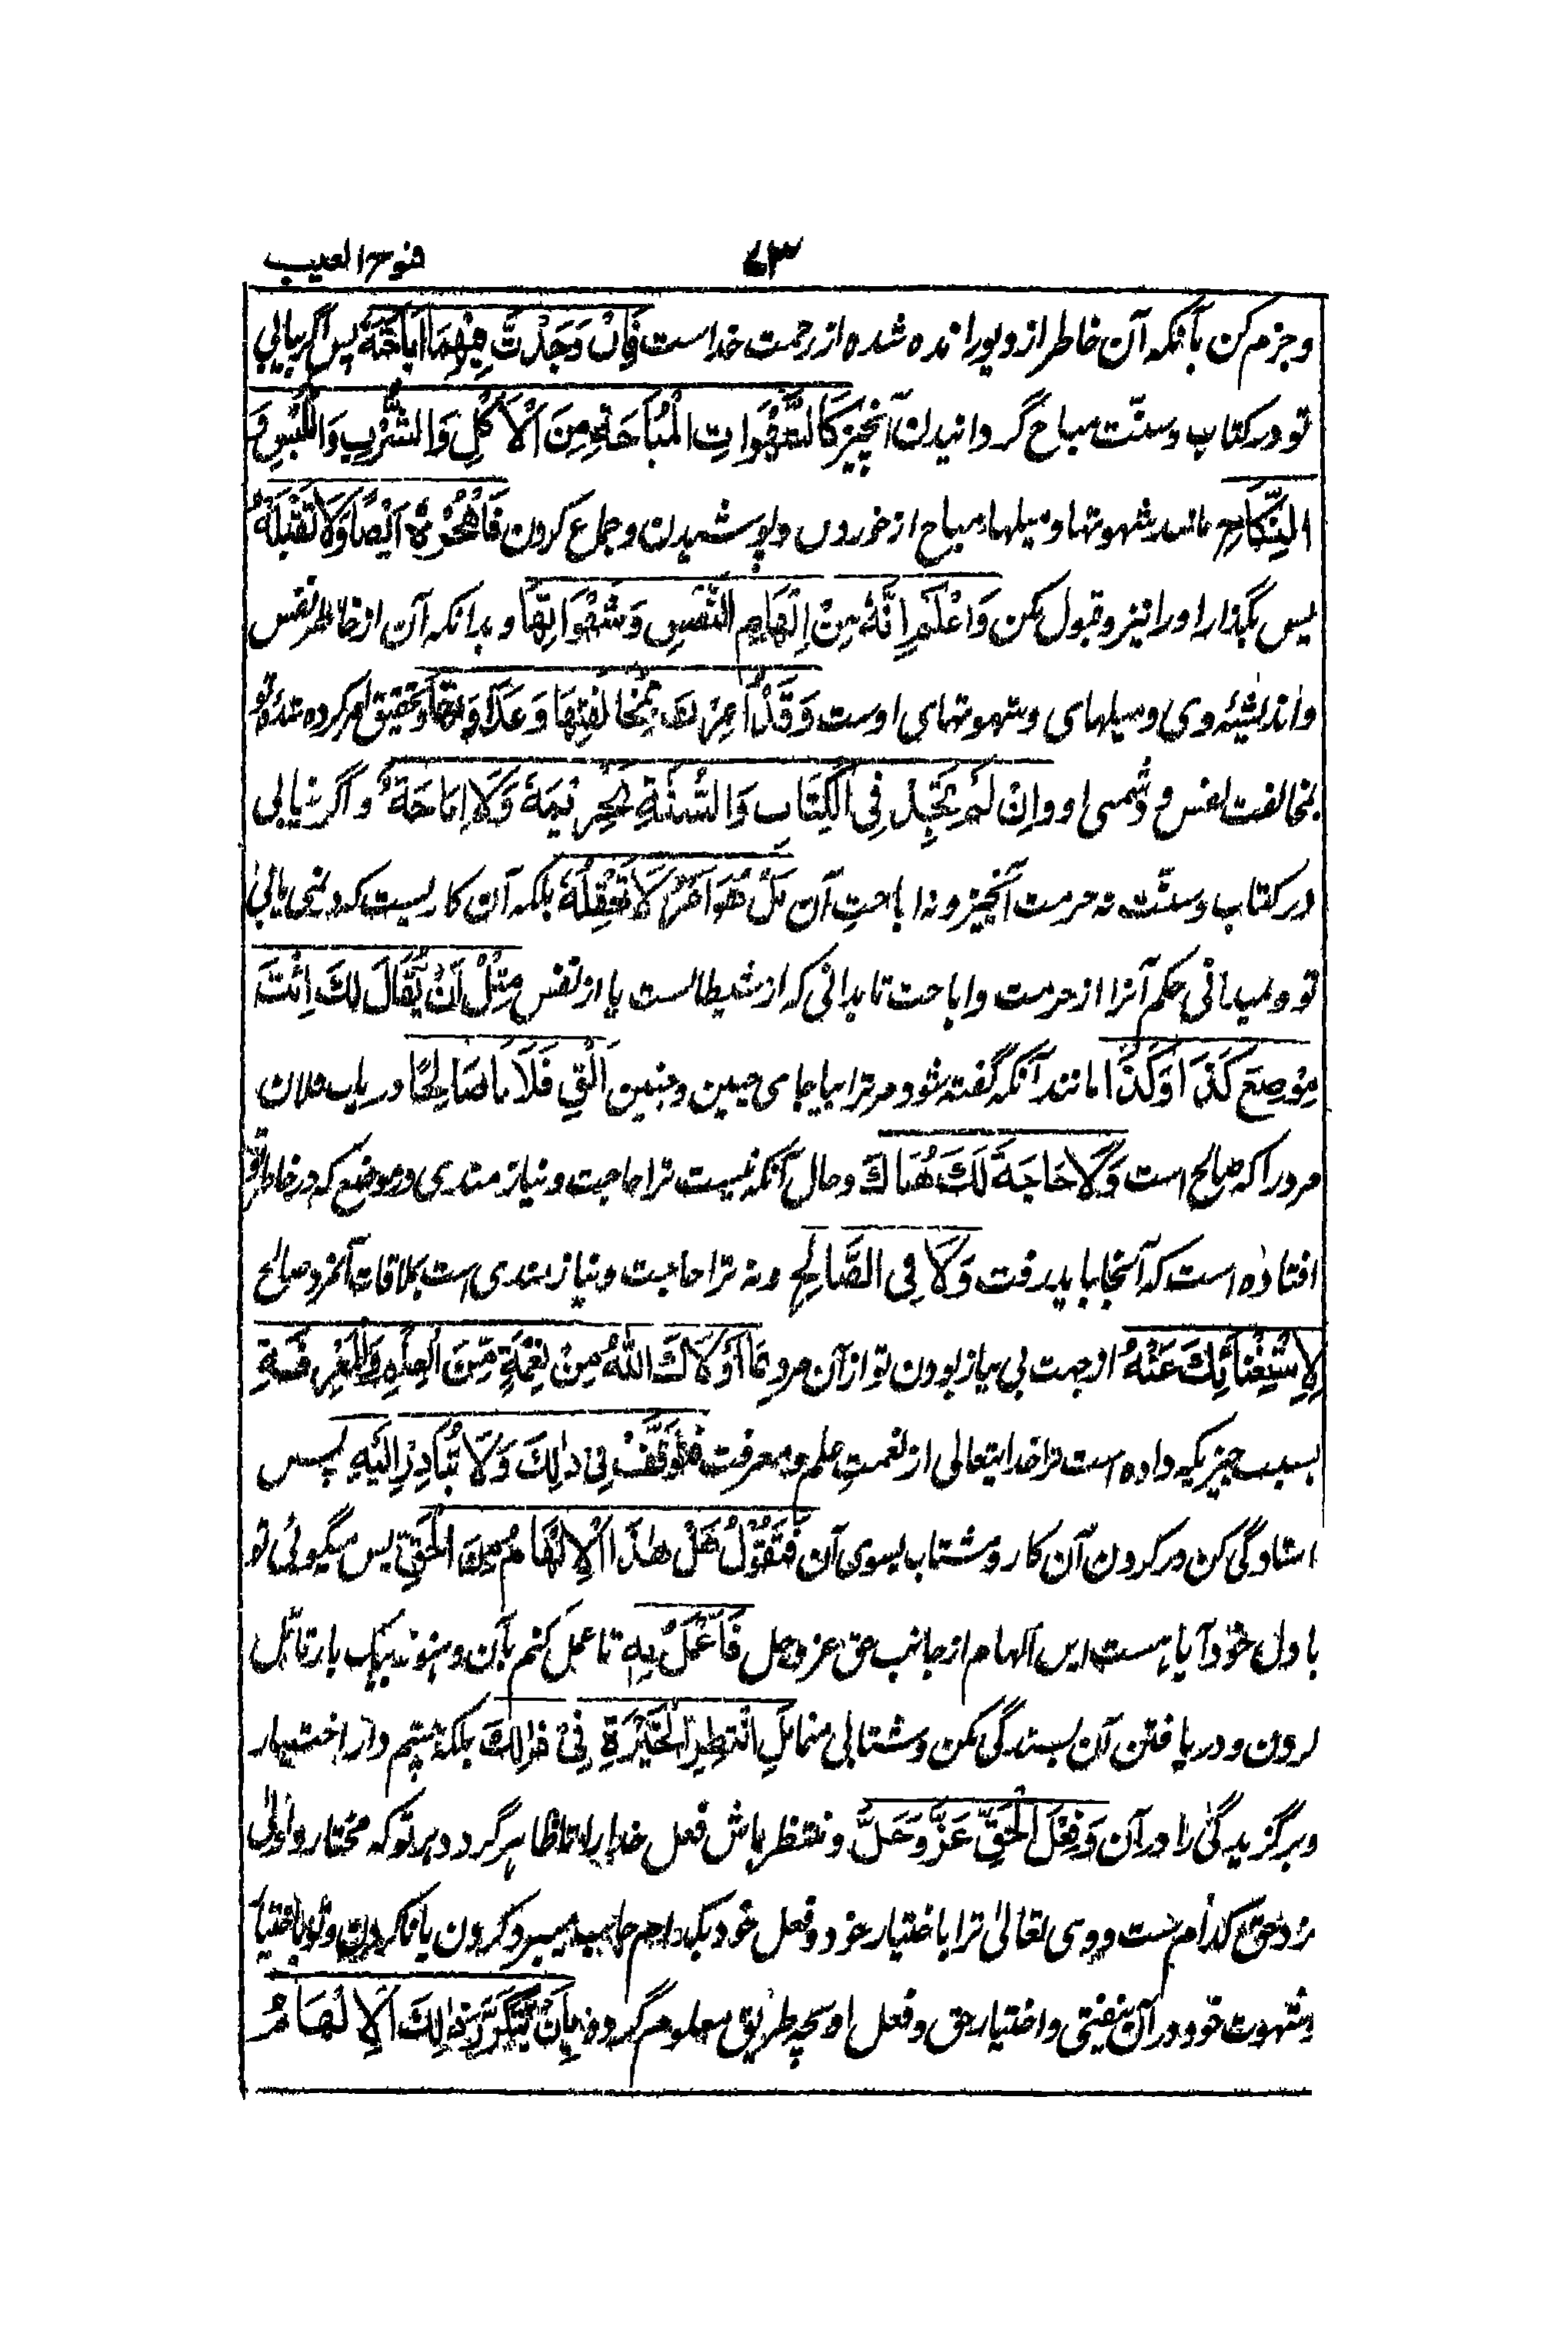 ۷۳ فتوح الغیب
و جزم کن بآنکه آن خاطر از دیو رانده شده از رحمت خداست فَاِنْ وَجَدْتَّ فِيْهِمَا اِبَاحَةً پس اگر بیابی
تو در کتاب و سنّت مباح گردانیدن آنچیز کَالشَّهَوَاتِ الْمُبَاحَةِ مِنَ الْاَكْلِ وَالشُّرْبِ وَاللُّبْسِ وَ
النِّكَاحِ مانند شهوتها و میلهاء مباح از خوردن و پوشیدن و جماع کردن فَاهْجُرْهُ اَيْضًا وَلَا تَقْبَلْهُ
پس بگذار او را نیز و قبول مکن وَاعْلَمْ اَنَّهُ مِنْ اِلْهَامِ النَّفْسِ وَشَهَوَاتِهَا و بدانکه آن از خاطر نفس
و اندیشئه وی و میلهای و شهوتهای اوست وَقَدْ اُمِرْتَ بِمُخَالَفَتِهَا وَعَدَاوَتِهَا و بتحقیق امر کرده شدهٔ تو
بمخالفت نفس و دشمنی او وَاِنْ لَمْ تَجِدْ فِي الْكِتَابِ وَالسُّنَّةِ تَحْرِيْمَهٗ وَلَا اِبَاحَةً و اگر نیابی
در کتاب و سنّت نه حرمت آنچیز و نه اباحتِ آن بَلْ هُوَ اَمْرٌ لَا تَعْقِلُهٗ بلکه آن کاریست که در نمی یابی
تو و نمیدانی حکم آنرا از حرمت و اباحت تا بدانی که از شیطانست یا از نفس مِثْلُ اَنْ يُّقَالَ لَكَ اِئْتَ
مَوْضِعَ كَذَا وَكَذَا مانند آنکه گفته شود مر ترا بیا بجای چنین و چنین اَلْقِ فُلَانًا صَالِحًا دریاب فلان
مرد را که صالح است وَلَا حَاجَةَ لَكَ هُنَاكَ و حال آنکه نیست ترا حاجت و نیازمندی در موضع که در خاطر تو
افتاده است که آنجا باید رفت وَلَا فِي الصَّالِحِ و نه ترا حاجت و نیازمندی است بملاقات آنمرد صالح
لِاسْتِغْنَائِكَ عَنْهُ از جهت بی نیاز بودن تو از آن مرد بِمَا اَوْلَاكَ اللهُ مِنْ نِعْمَةٍ مِّنَ الْعِلْمِ وَالْمَعْرِفَةِ
بسبب چیزیکه داده است ترا خدایتعالی از نعمتِ علم و معرفت فَتَوَقَّفْ فِيْ ذٰلِكَ وَلَا تُبَادِرْ اِلَيْهِ پس
استادگی کن در کردن آن کار و مشتاب بسوی آن فَتَقُوْلُ هَلْ هٰذَا الْاِلْهَامُ مِنَ الْحَقِّ پس میگوئی تو
با دل خود آیا هست این الهام از جانب حق عز و جل فَاَعْمَلُ بِهٖ تا عمل کنم بآن و هنوز بیک بار تامّل
کردن و دریافتن آن بسندگی مکن و شتابی منما بَلِ انْتَظِرِ الْخِيَرَةَ فِيْ ذٰلِكَ بلکه چشم دار اختیار
و برگزیدگی را در آن وَفِعْلَ الْحَقِّ عَزَّ وَجَلَّ و منتظر باش فعل خدا را تا ظاهر گردد بر تو که مختار و اولی
نزد حق کدام است و وی تعالی ترا باختیار خود و فعل خود بکدام جانب میبرد کردن یا ناکردن و تو باختیار
و شهوت خود در آن نیفتی و اختیار حق و فعل او بچه طریق معلوم گردد بِاَنْ يَّتَكَرَّرَ ذٰلِكَ الْاِلْهَامُ